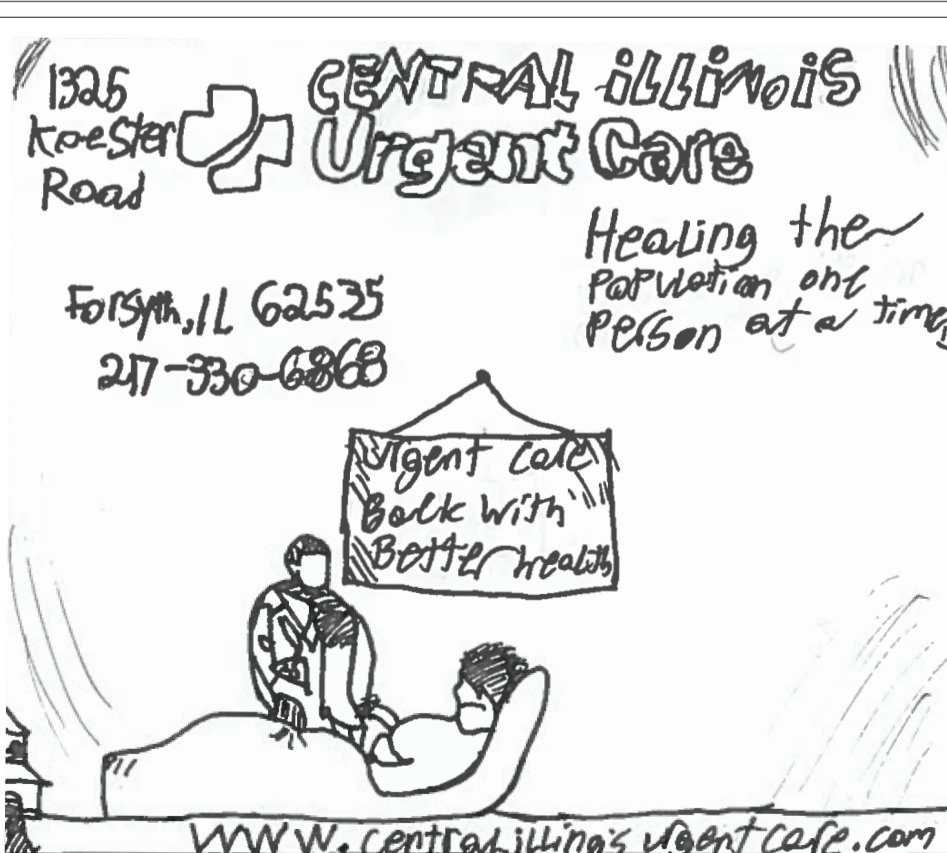 1325
Koester
Road
CENTRAL ILLINOIS
Urgent Care
Healing the
population one
person at a time
Forsyth, IL 62535
217-330-6868
Urgent care
Back with
Better health
www.centralillinoisurgentcare.com